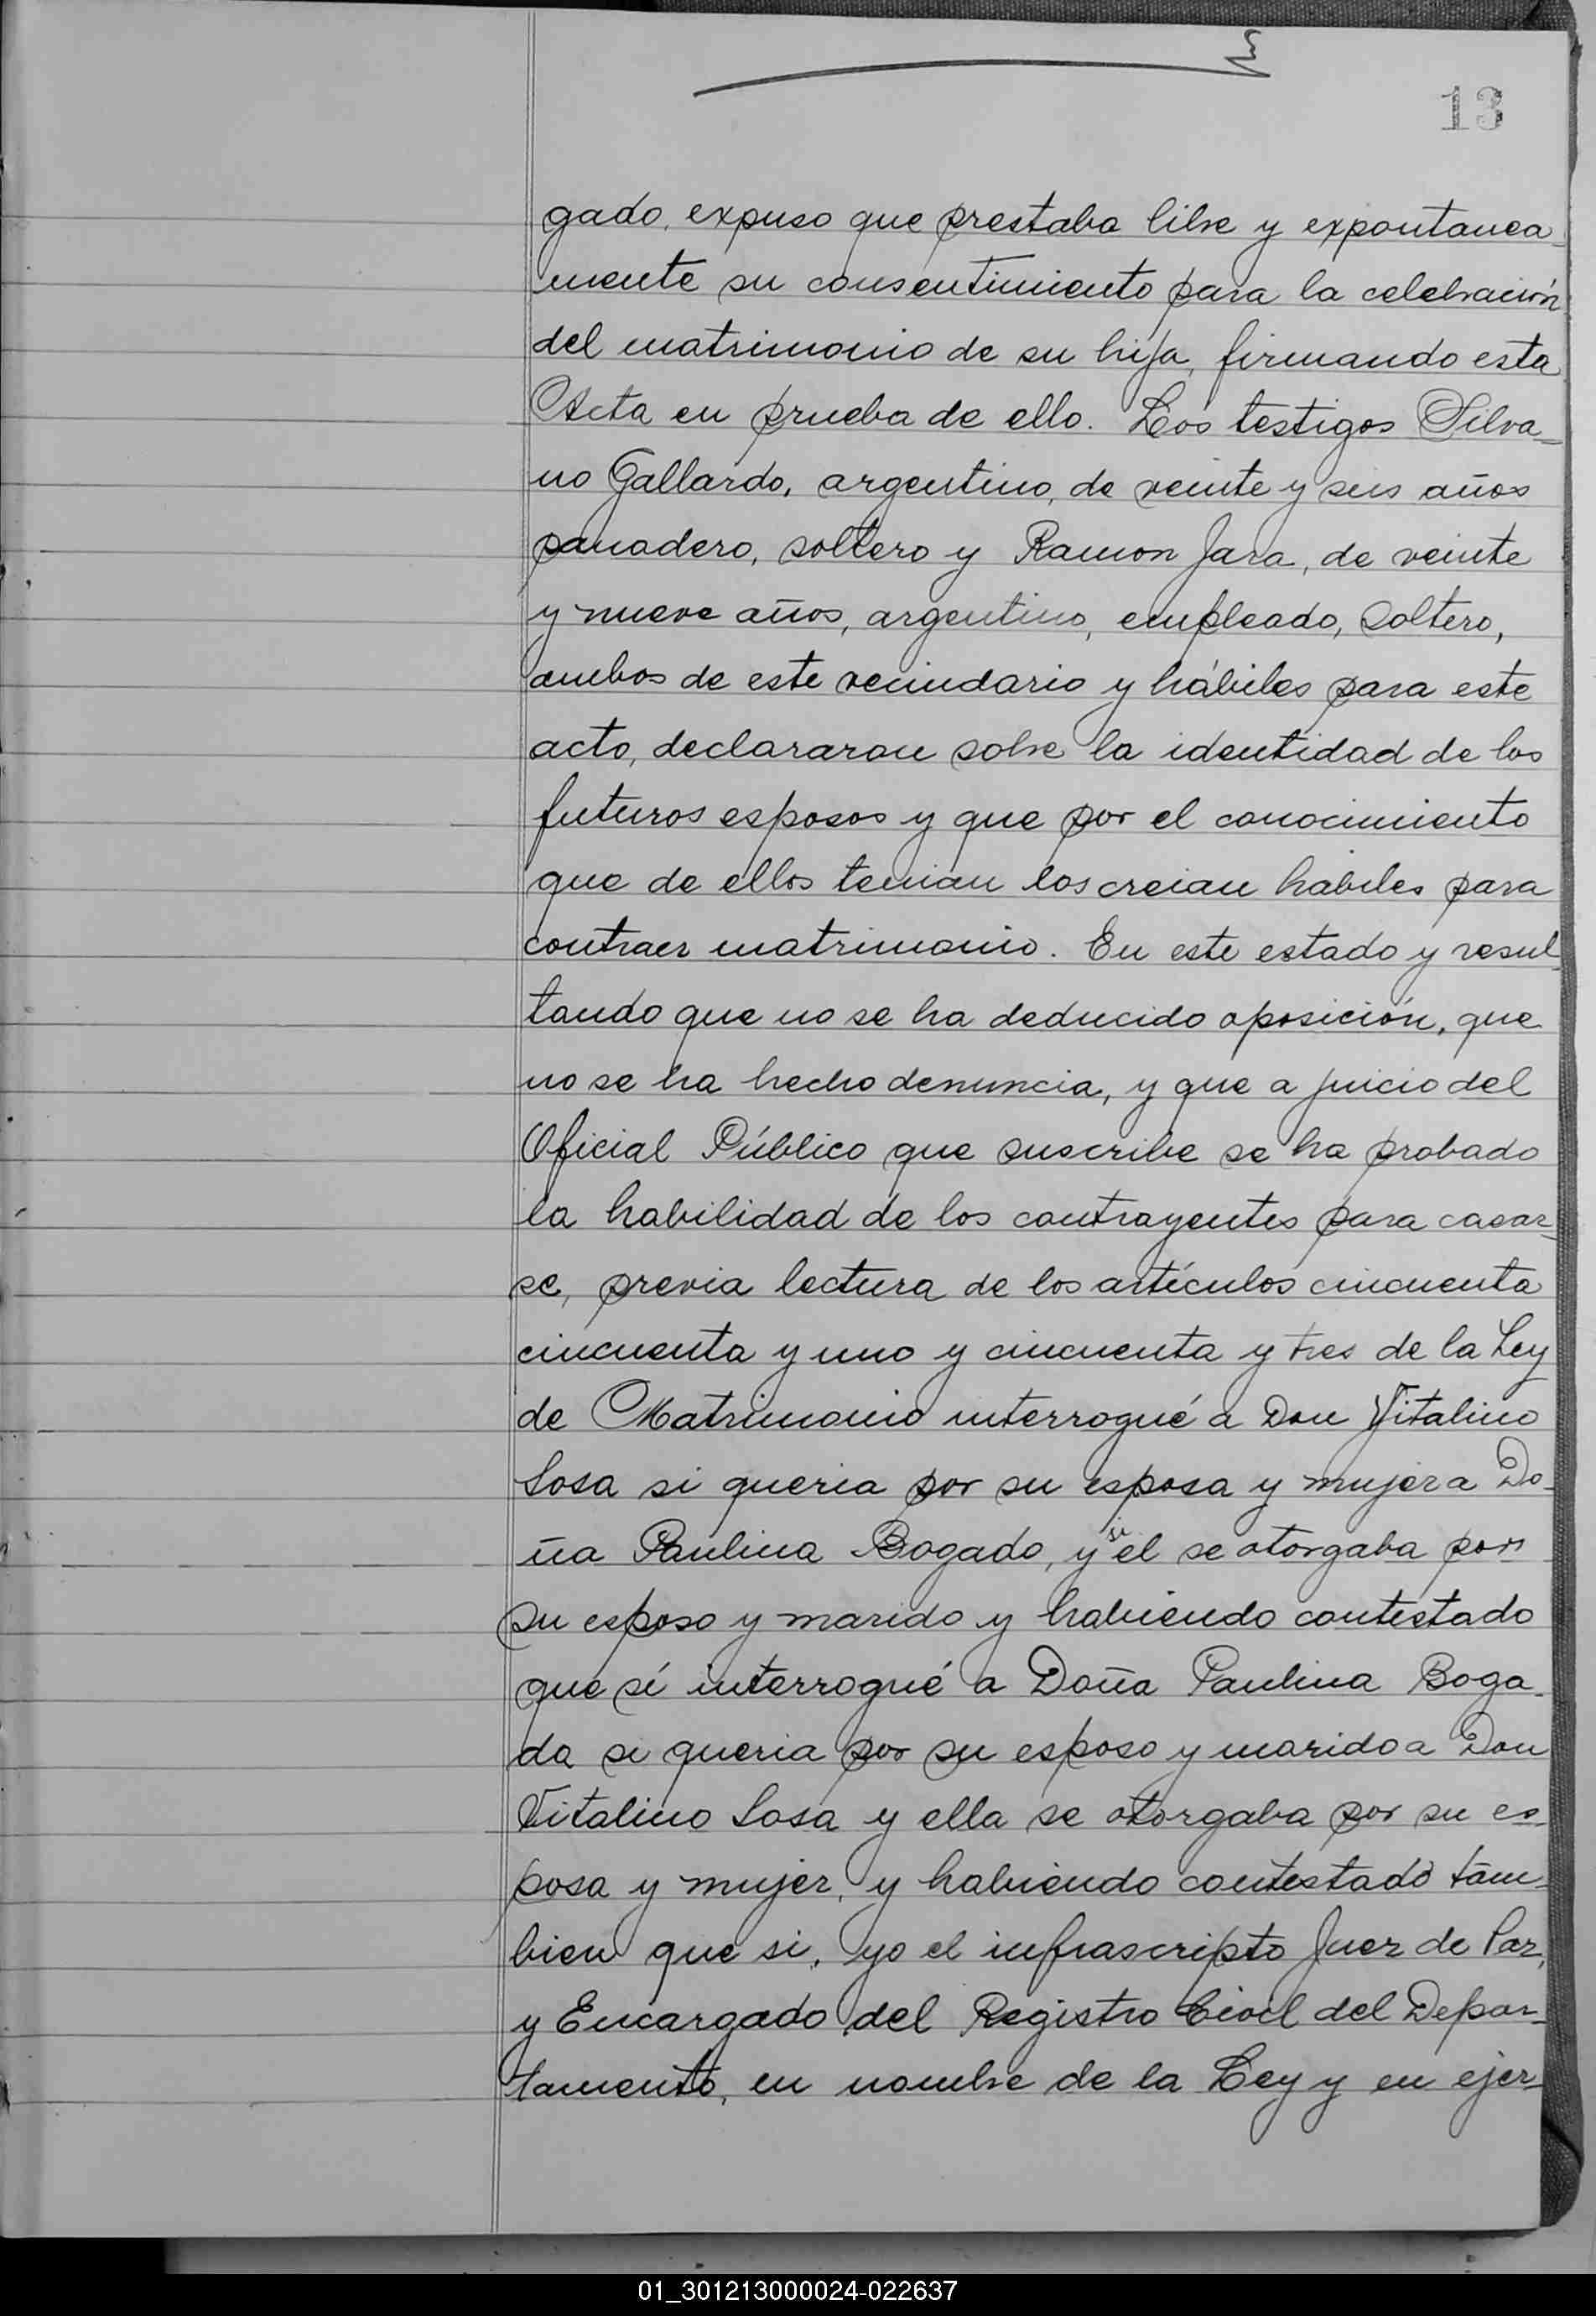 13
gado, expuso que prestaba libre y expontanea-
mente su consentimiento para la celebración
del matrimonio de su hija, firmando esta
Acta en prueba de ello. Los testigos Silva-
no Gallardo, argentino, de veinte y seis años
panadero, soltero y Ramon Jara, de veinte
y nueve años, argentino, empleado, soltero,
ambos de este vecindario y hábiles para este
acto, declararon sobre la identidad de los
futuros esposos y que por el conocimiento
que de ellos tenian los creian habiles para
contraer matrimonio. En este estado y resul-
tando que no se ha deducido oposición, que
no se ha hecho denuncia, y que a juicio del
Oficial Público que suscribe se ha probado
la habilidad de los contrayentes para casar-
se, previa lectura de los artículos cincuenta
cincuenta y uno y cincuenta y tres de la Ley
de Matrimonio interrogué a Don Vitalino
Sosa si queria por su esposa y mujer a Do-
ña Paulina Bogado, y si el se otorgaba por
su esposo y marido y habiendo contestado
que sí interrogué a Doña Paulina Boga-
do si queria por su esposo y marido a Don
Vitalino Sosa y ella se otorgaba por su es-
posa y mujer, y habiendo contestado tam-
bien que si, yo el infrascripto Juez de Paz,
y Encargado del Registro Civil del Depar-
tamento, en nombre de la Ley y en ejer-
01_301213000024-022637